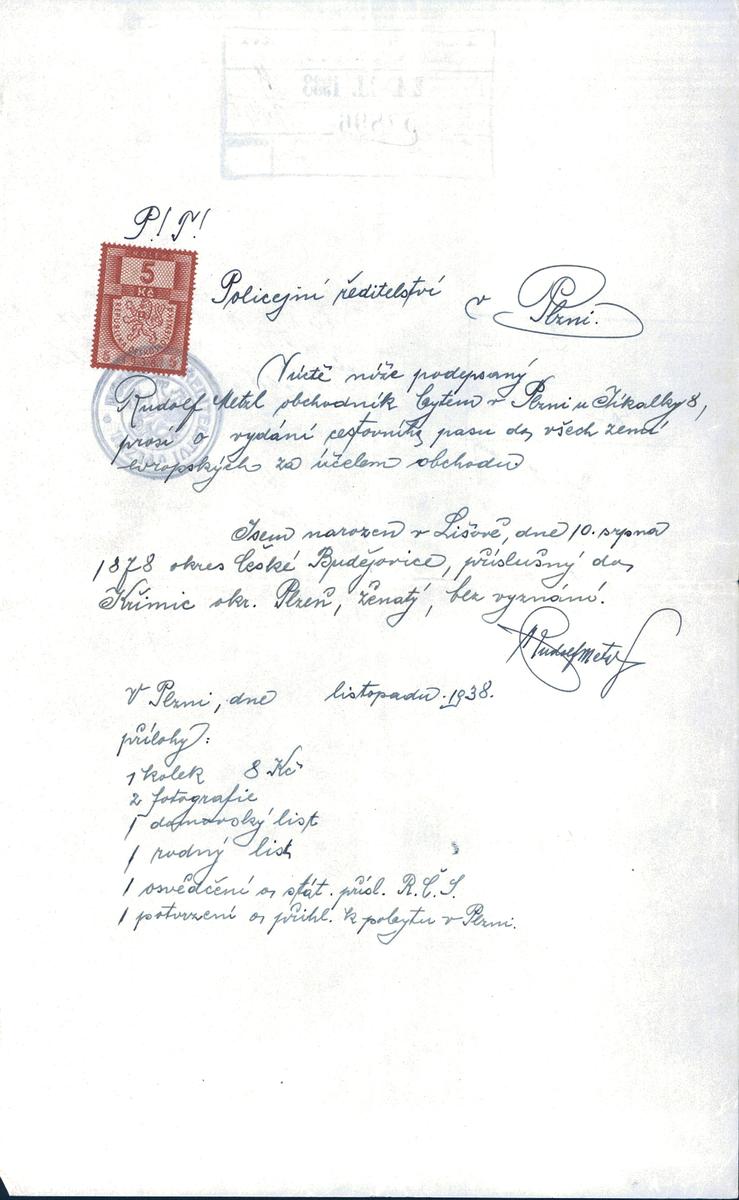 P! T!
5
Kč
5 5
Policejní ředitelství v Plzni.
Vúctě níže podepsaný
Rudolf Metzl obchodník bytem v Plzni u Jíkalky 8,
prosí o vydání cestovního pasu do všech zemí
evropských za účelem obchodu
Jsem narozen v Lišově, dne 10. srpna
1878 okres České Budějovice, příslušný do
Křimic okr. Plzeň, ženatý, bez vyznání.
Rudolf Metzl
V Plzni, dne listopadu 1938.
přílohy:
1 kolek 8 Kč
2 fotografie
1 domovský list
1 rodný list
1 osvědčení o stát. přísl. R.Č.S.
1 potvrzení o přihl. k pobytu v Plzni.